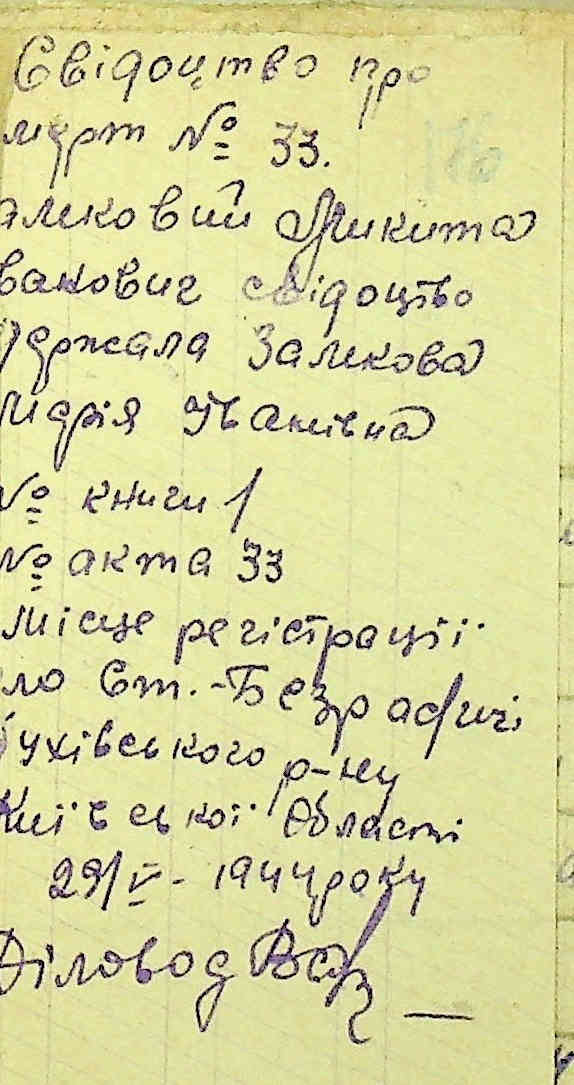 Свідоцтво про
мерт № 33.
алековий Микита
ванович свідоцтво
держала Залекова
Марія Іванівна
№ книги 1
№ акта 33
Місце регістрації
ло Ст.-Безрадичі
ухівського р-ну
Київської області
29/V- 1944 року
Діловод